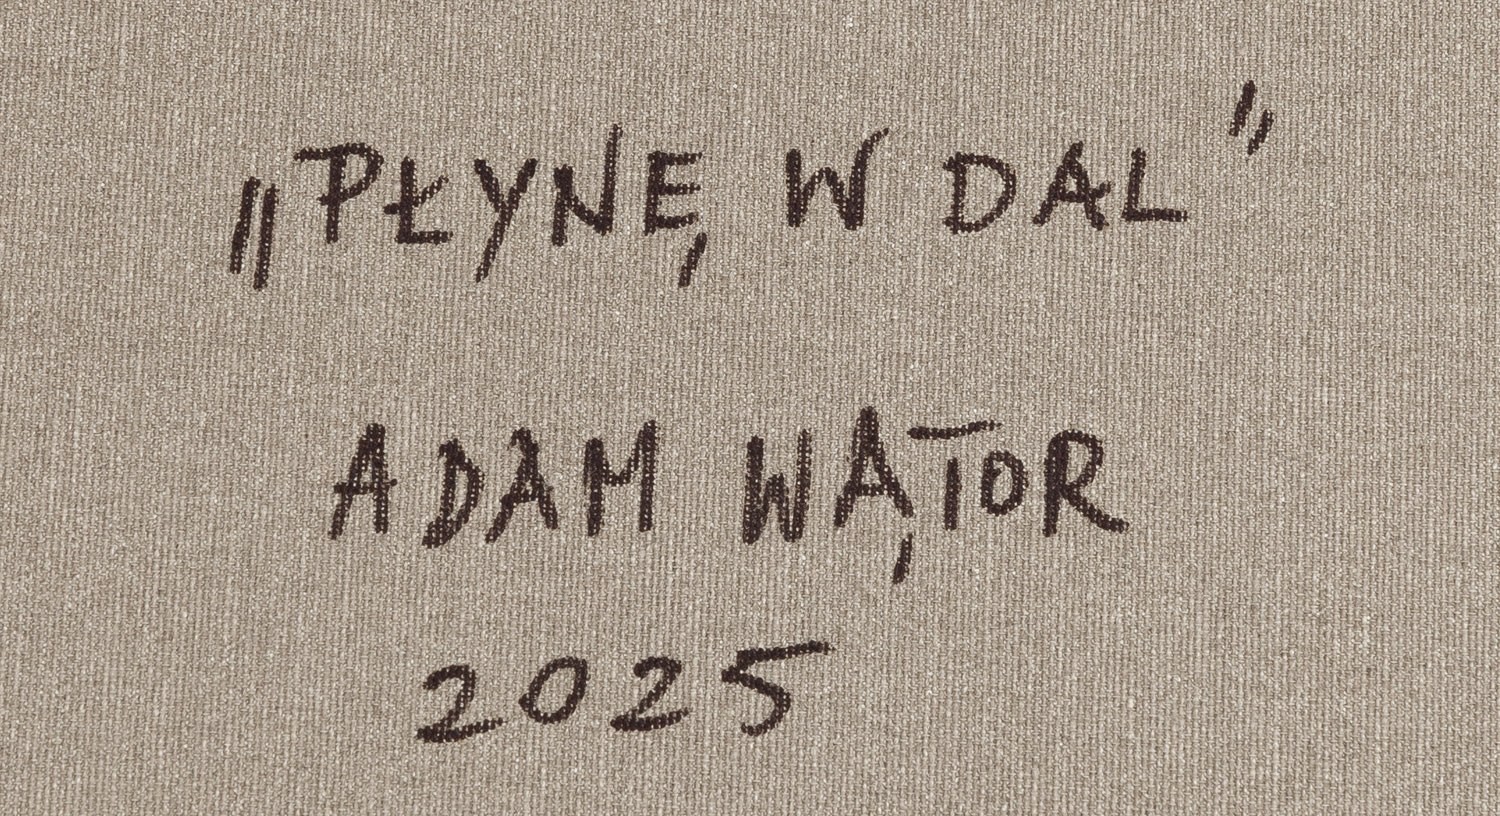 „PŁYNĘ W DAL”
ADAM WĄTOR
2025